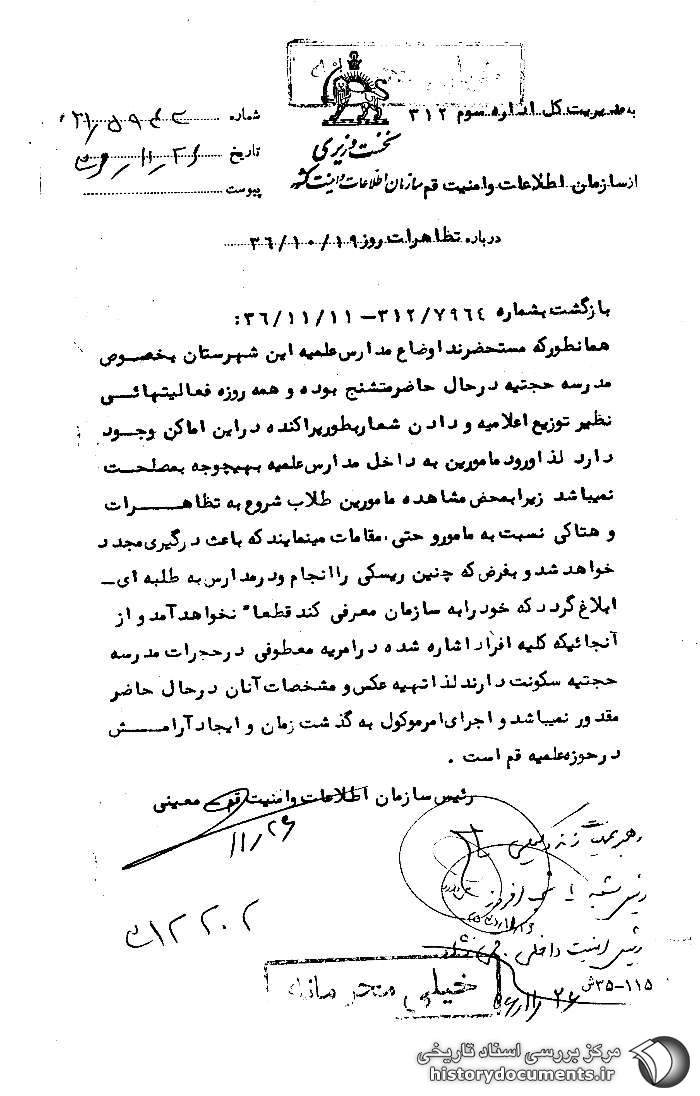 به مدیریت کل اداره سوم ۳۱۲
شماره
نخست وزیری
تاریخ
از سازمان اطلاعات و امنیت قم سازمان اطلاعات و امنیت کشور
پیوست
درباره تظاهرات روز ۳۶/۱۰/۱۹
بازگشت بشماره ۳۱۲/۷۹۶۴ – ۳۶/۱۱/۱۱:
همانطورکه مستحضرند اوضاع مدارس علمیه این شهرستان بخصوص
مدرسه حجتیه درحال حاضرمتشنج بوده و همه روزه فعالیتهائی
نظیر توزیع اعلامیه و دادن شعاربطورپراکنده دراین اماکن وجود
دارد لذاورود مامورین به داخل مدارس علمیه بهیچوجه بمصلحت
نمیباشد زیرابمحض مشاهده مامورین طلاب شروع به تظاهرات
و هتاکی نسبت به مامورو حتی مقامات مینمایند که باعث درگیری مجدد
خواهد شد و بفرض که چنین ریسکی راانجام ودرمدارس به طلبه ای –
ابلاغ گردد که خودرابه سازمان معرفی کند قطعا" نخواهدآمد و از
آنجائیکه کلیه افراد اشاره شده درامریه معطوفی درحجرات مدرسه
حجتیه سکونت دارند لذاتهیه عکس و مشخصات آنان درحال حاضر
مقدور نمیباشد و اجرای امرموکول به گذشت زمان و ایجادآرامش
درحوزه علمیه قم است .
رئیس سازمان اطلاعات وامنیت قم – معینی
۱۱/۲۶
رهبر عملیات
رئیس امنیت داخلی
۱۲۲۰۲
۱۱۵–۳۵ش
خیلی محرمانه
مرکز بررسی اسناد تاریخی
historydocuments.ir